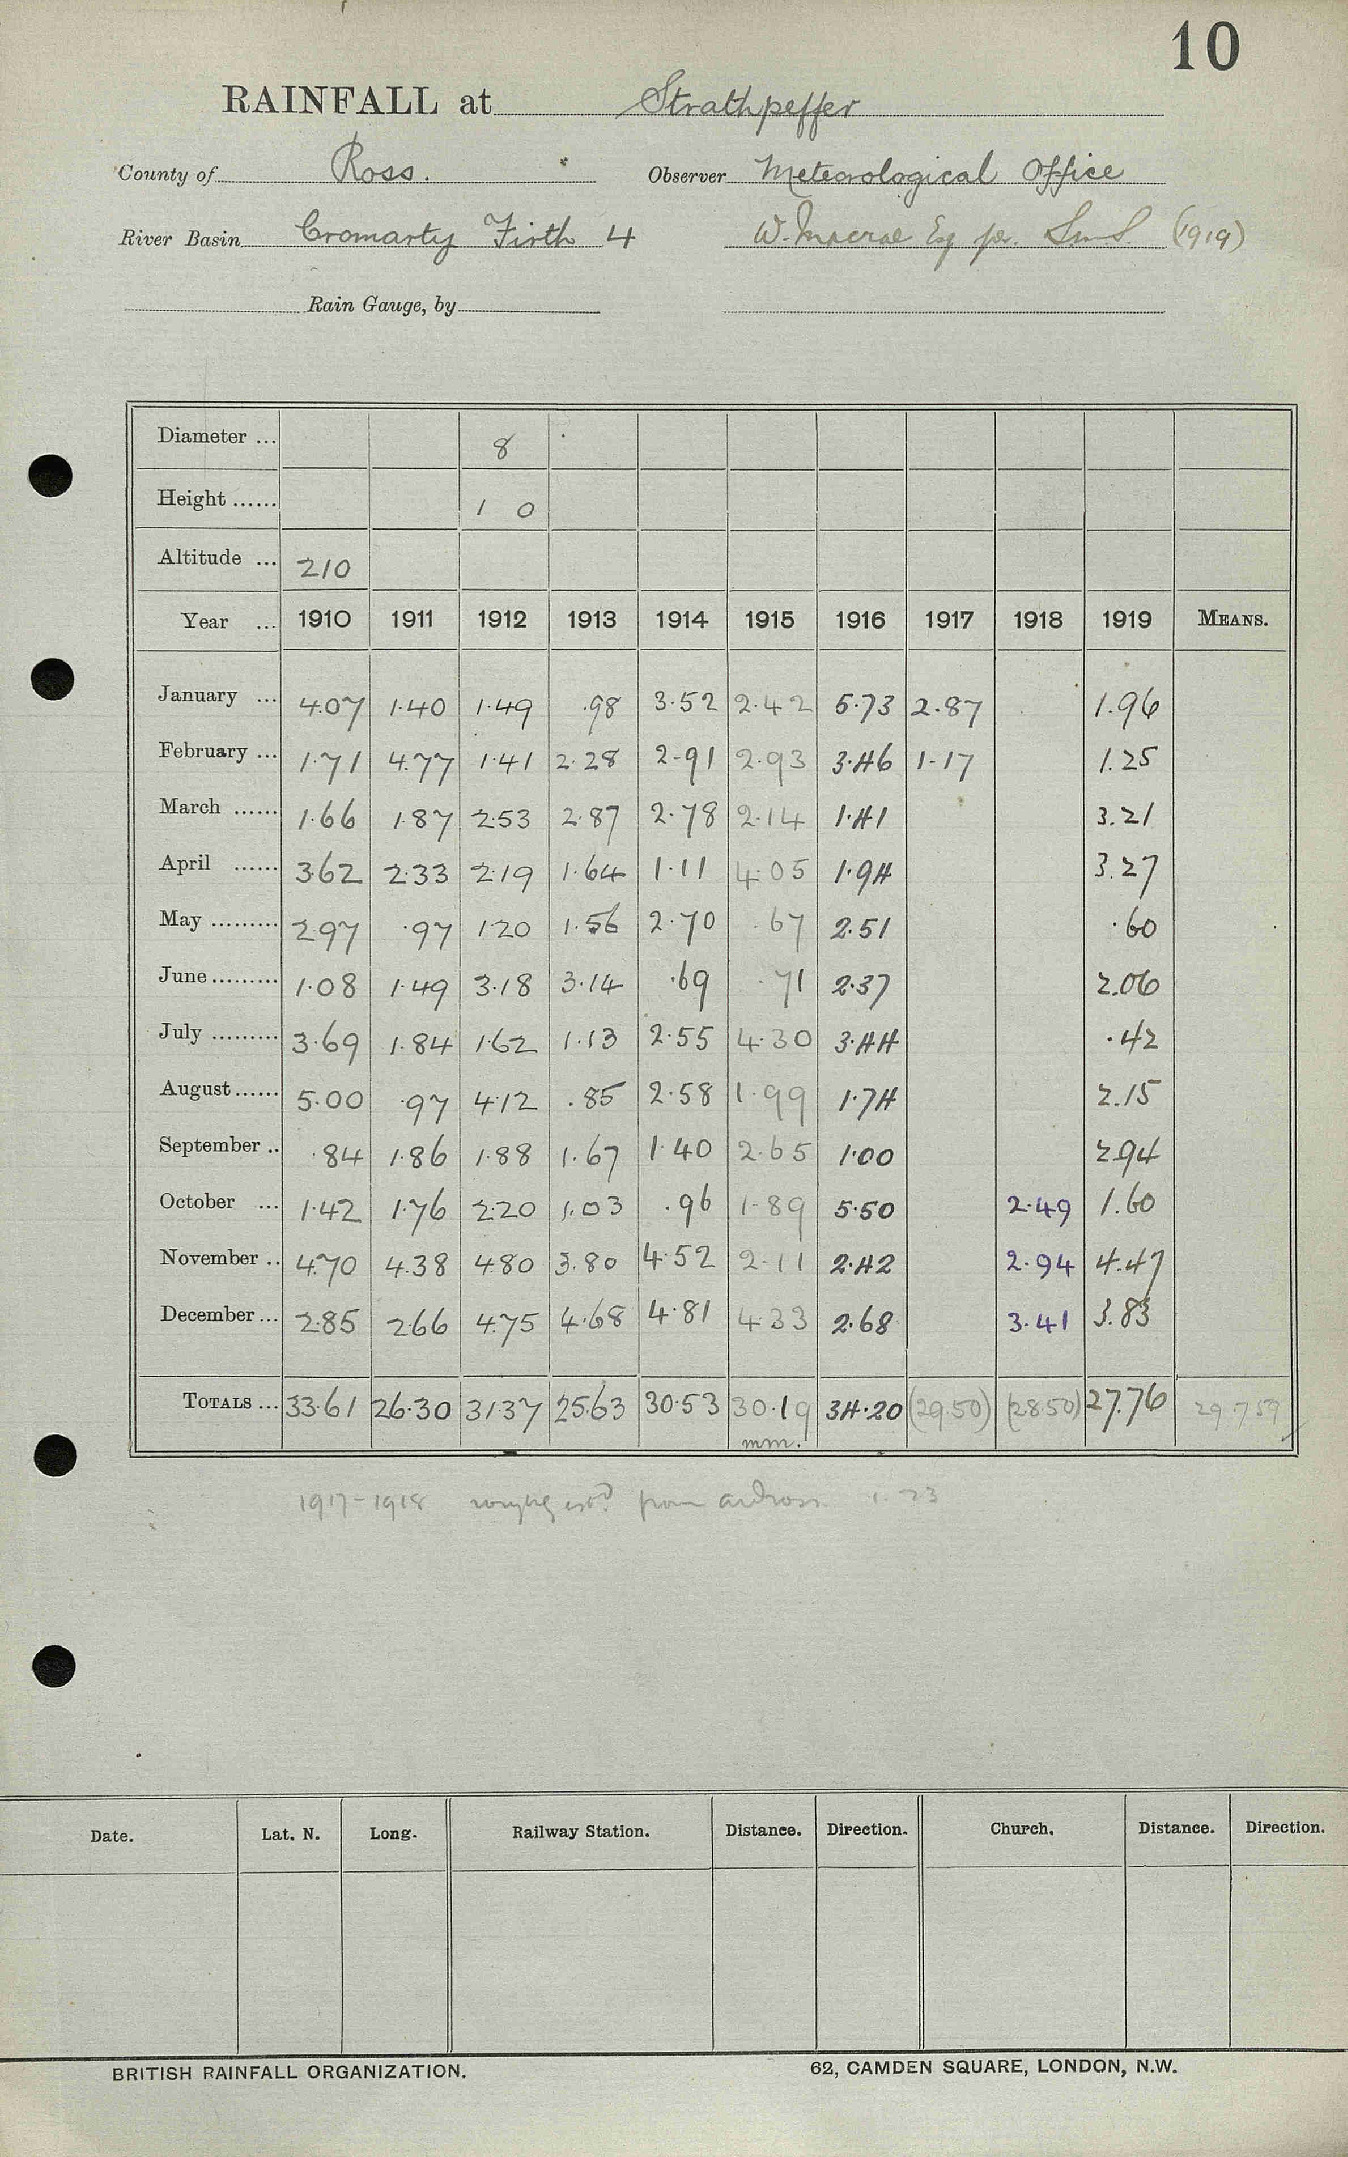 10
RAINFALL at Strathpeffer
County of Ross. Observer Meteorological Office
River Basin Cromarty Firth 4 W. Macrae Esq per. (1919)
Rain Gauge, by
Diameter ... 8
Height ...... 1 0
Altitude ... 210
Year ... 1910 1911 1912 1913 1914 1915 1916 1917 1918 1919 MEANS.
January ... 4.07 1.40 1.49 .98 3.52 2.42 5.73 2.87 1.96
February ... 1.71 4.77 1.41 2.28 2.91 2.93 3.46 1.17 1.25
March ...... 1.66 1.87 2.53 2.87 2.78 2.14 1.41 3.21
April ...... 3.62 2.33 2.19 1.64 1.11 4.05 1.94 3.27
May ......... 2.97 .97 1.20 1.56 2.70 .67 2.51 .60
June ......... 1.08 1.49 3.18 3.14 .69 .71 2.37 2.06
July ......... 3.69 1.84 1.62 1.13 2.55 4.30 3.44 .42
August ...... 5.00 .97 4.12 .85 2.58 1.99 1.74 2.15
September .. .84 1.86 1.88 1.67 1.40 2.65 1.00 2.94
October ... 1.42 1.76 2.20 1.03 .96 1.89 5.50 2.49 1.60
November .. 4.70 4.38 4.80 3.80 4.52 2.11 2.42 2.94 4.47
December ... 2.85 2.66 4.75 4.68 4.81 4.33 2.68 3.41 3.83
TOTALS ... 33.61 26.30 31.37 25.63 30.53 30.19 34.20 (29.50) (28.50) 27.76 29.759
mm.
1917-1918 roughly estd from Ardross 1.23
Date. Lat. N. Long. Railway Station. Distance. Direction. Church. Distance. Direction.
BRITISH RAINFALL ORGANIZATION. 62, CAMDEN SQUARE, LONDON, N.W.